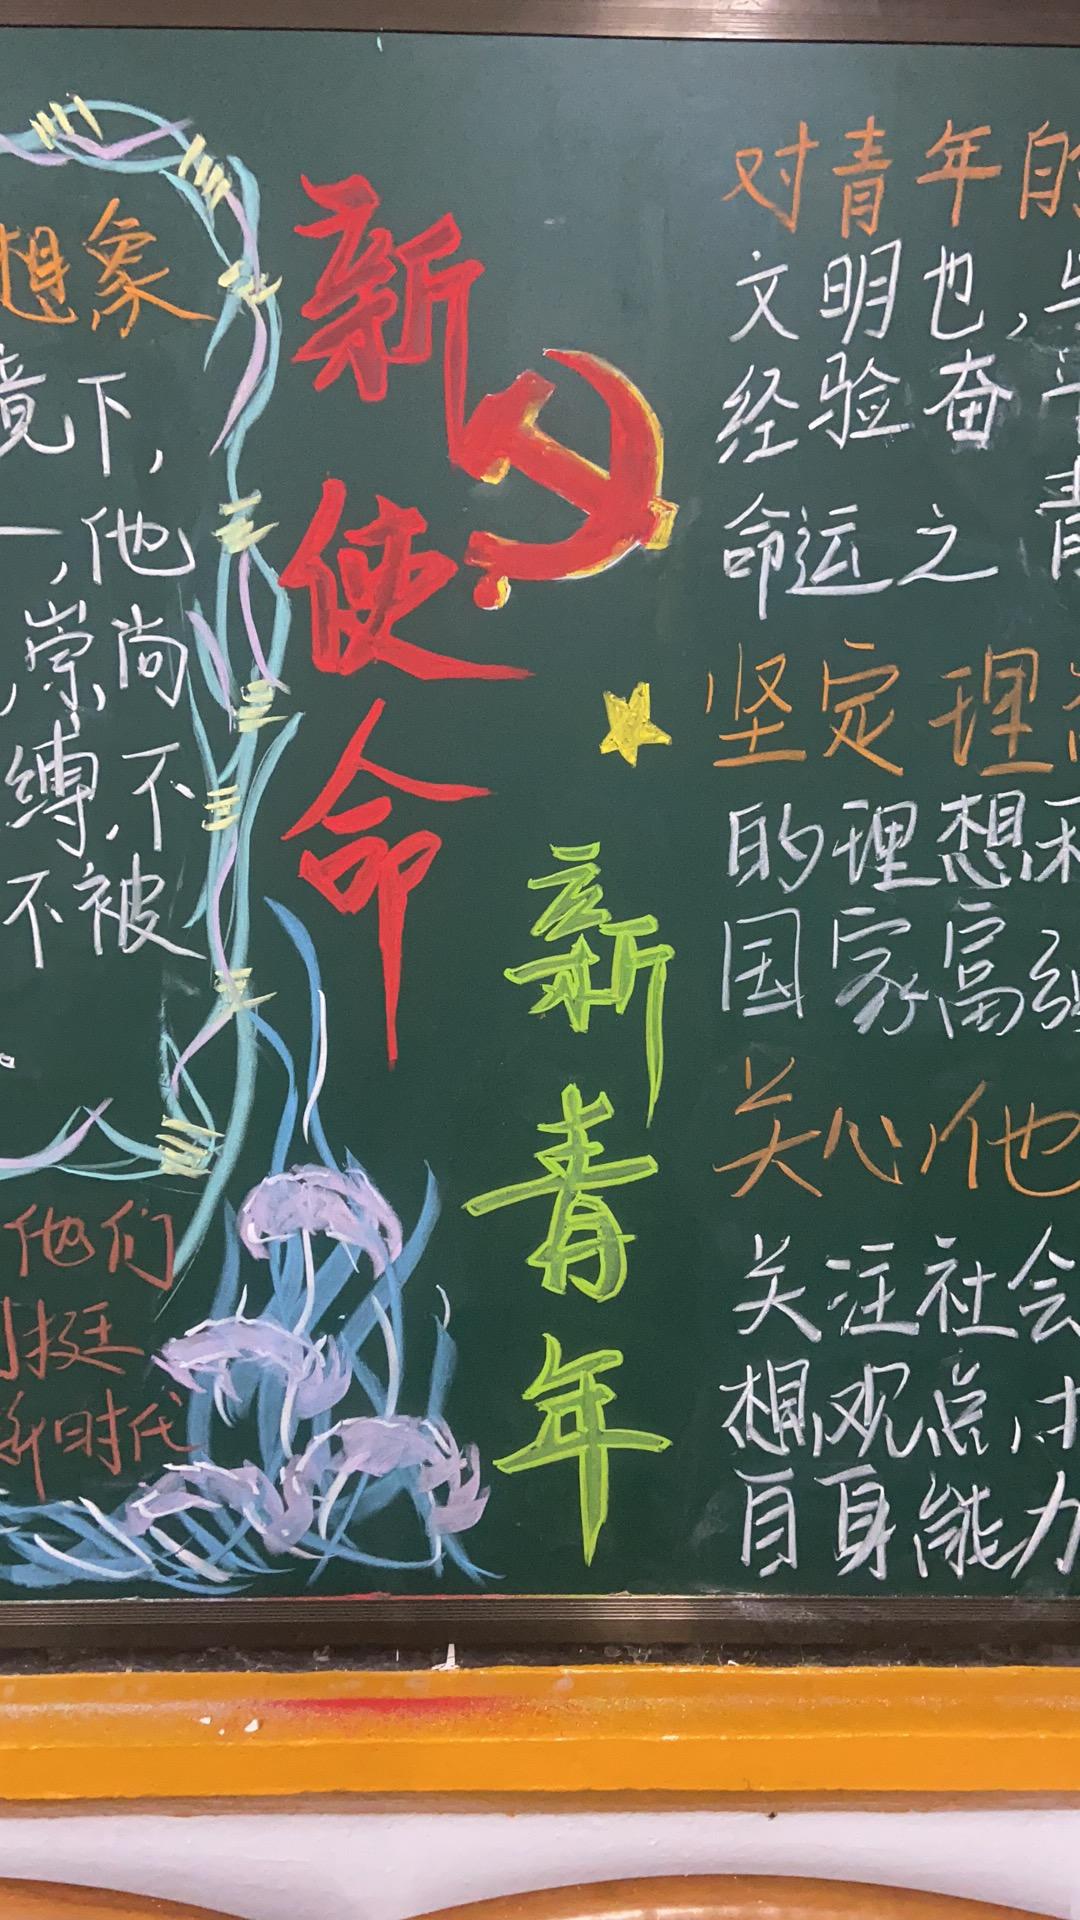 想象
境下,
一,他
崇尚
缚,不
不被
。
他们
挺
新时代
新使命
新青年
对青年的
文明也,
经验奋斗
命运之 青
坚定理想
的理想和
国家富强
关心他
关注社会
想,观点,
自身能力